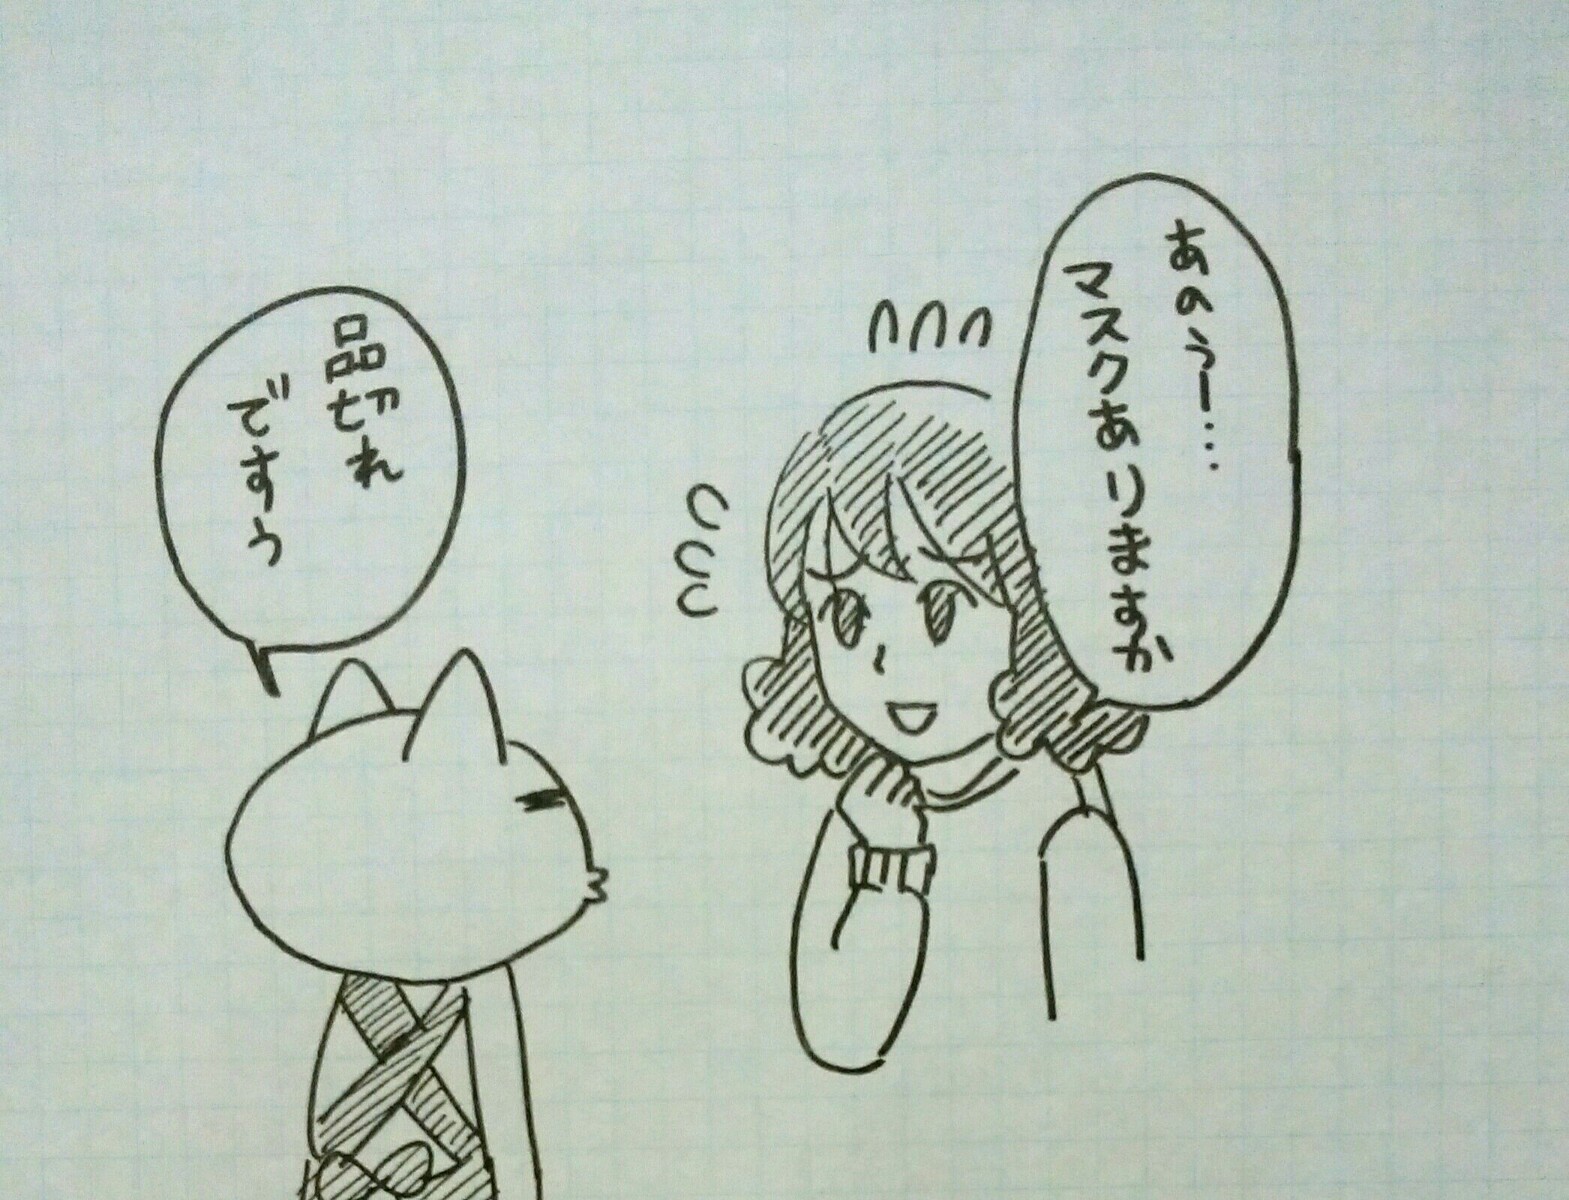 あのぅー…
マスクありますか
品切れ
ですぅ